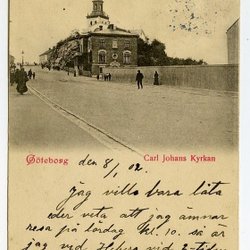 Göteborg den 8/1 02. Carl Johans Kyrkan
Jag ville bara låta
eder veta att jag ämnar
resa på lördag kl. 10. så är
jag ved vid 2-tiden